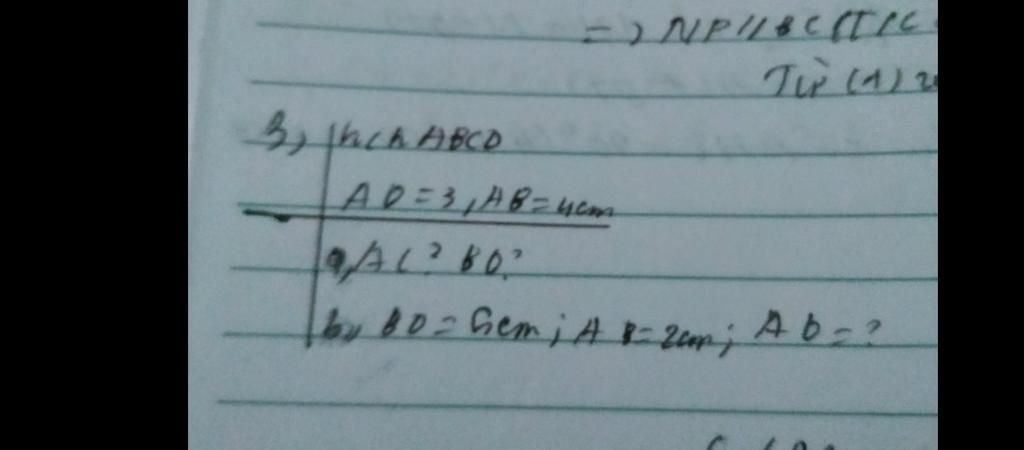 =) NP // BC (T/C
Từ (1)
3, hcn ABCD
AD = 3, AB = 4cm
a, AC? BD?
b, BD = 5cm; AB = 2cm; AD = ?